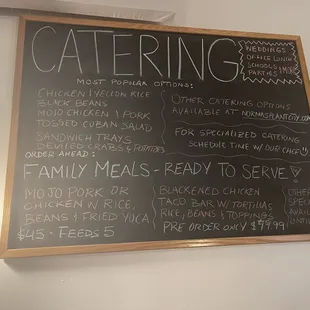 CATERING
WEDDINGS
OFFICE LUNCH
SCHOOLS
PARTIES & MORE
MOST POPULAR OPTIONS:
CHICKEN & YELLOW RICE
BLACK BEANS
MOJO CHICKEN & PORK
TOSSED CUBAN SALAD
SANDWICH TRAYS
DEVILED CRABS & POTATOES
OTHER CATERING OPTIONS
AVAILABLE AT
FOR SPECIALIZED CATERING,
SCHEDULE TIME W/ OUR CHEF
ORDER AHEAD:
FAMILY MEALS - READY TO SERVE
MOJO PORK OR
CHICKEN W/ RICE,
BEANS & FRIED YUCA
$45 - FEEDS 5
BLACKENED CHICKEN
TACO BAR W/ TORTILLAS
RICE, BEANS & TOPPINGS
PRE ORDER ONLY $79.99
OTHER
SPEC
AVAIL
UNTIL